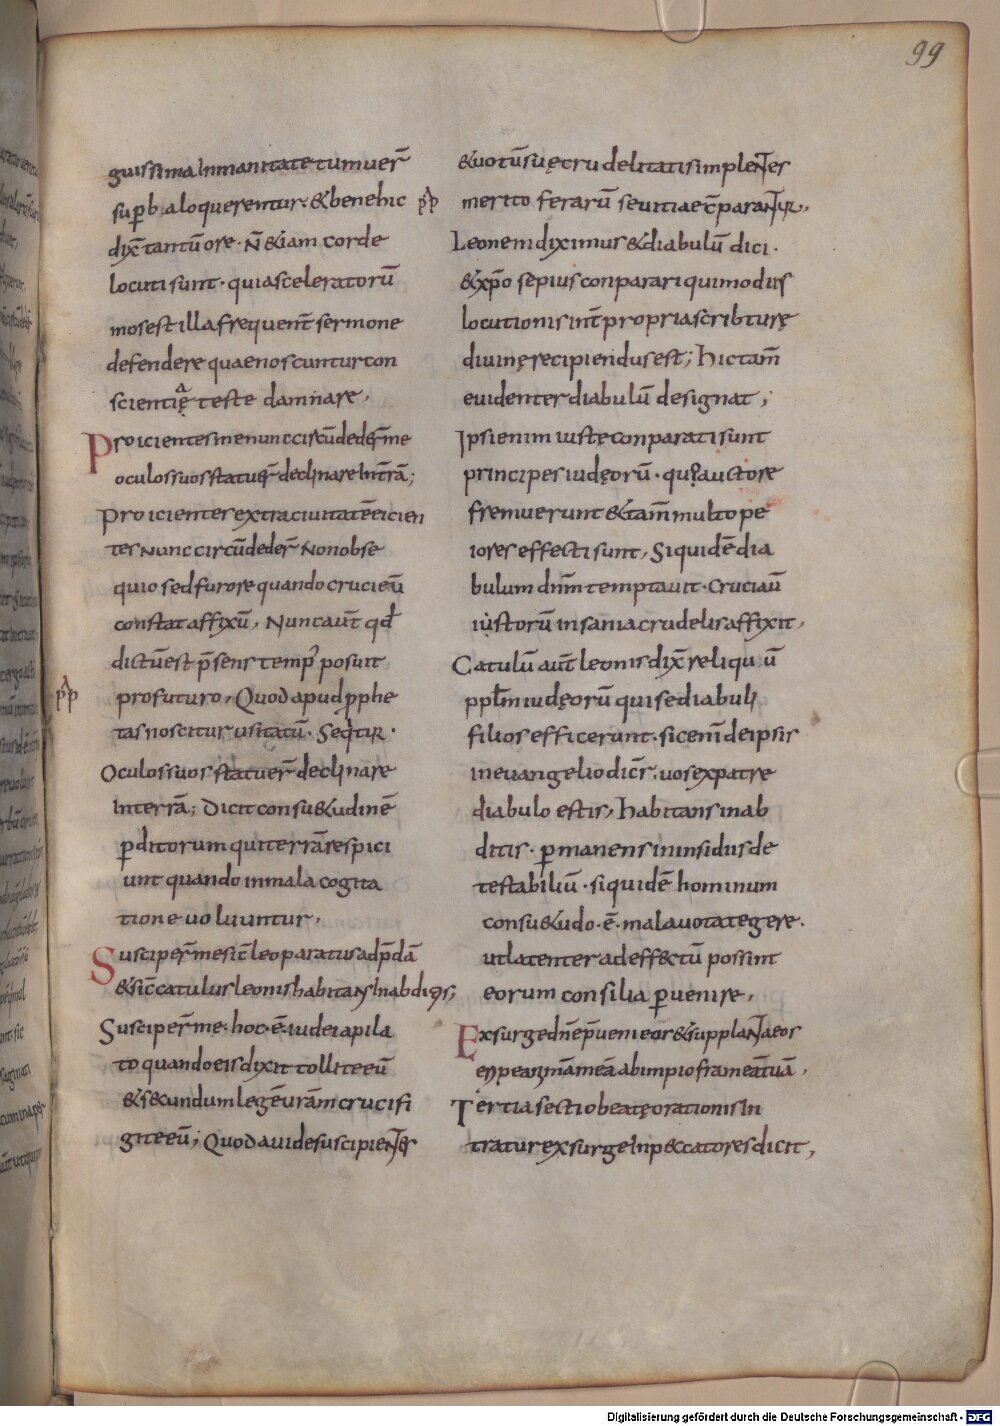 99
guissima Inmanitate tumuer̄
suꝑbia loquerentur· & bene hic
dix̄ tantū ore· N̄ &iam corde
locuti sunt· quia sceleratorū
mos est illa frequent̄ sermone
defendere quae noscuntur con
scientię teste damnare,
Proicientes me nunc circūdeder̄ me
oculos suos statuer̄ declinare In trā;
Proicientes extra ciuitatē eicien
tes Nunc circūdeder̄ Non obse
quio sed furore quando crucieū
constat affixū, Nunc aut̄ qđ
dictū est p̄sens temp' posuit
pro futuro, Quod apud ꝓphe
tas noscitur usitatū· Seq̄tur·
Oculos suos statuer̄ declinare
Interrā; Dicit consu&udinē
ꝑditorum qui terrā respici
unt quando in mala cogita
tione uoluuntur,
Susceper̄ me sic̄ leo paratus ad p̄dā
& sic̄ catulus leonis habitans In abditis;
Susceper̄ me· hoc·ē· iudei a pila
to quando eis dixit tollite eū
& s&undum legē uram̄ crucifi
gite eū; Quod auide suscipientes
& uotū suę crudelitatis implentes
merito ferarū seuitiae c̄parantur,
Leonem diximus & diabulū dici·
& xp̄o sepius conparari qui modus
locutionis int̄ propria scribturę
diuinę recipiendus est; Hic tam̄
euidenter diabulū designat;
Ipsi enim iustę conparati sunt
principes iudęorū· quo auctore
fremuerunt & tam̄ multo pe
iores effecti sunt, Siquidē dia
bulum dn̄m temptauit· Cruci aū
iustorū insania crudelis affixit,
Catulū aut̄ leonis dix̄ reliquū
ppl̄m iudęorū qui se diabuli
filios efficerunt· sic eni̅ de ipsis
in euangelio dicr̄· uos ex patre
diabulo estis, habitans in ab
ditis· ꝑmanens in insidiis de
testabiliū· siquidē hominum
consu&udo·ē· mala uota tegere·
ut latenter ad eff&tū possint
eorum consilia ꝑuenire,
Exsurge dn̄e p̄ueni eos & supplanta eos
eripe animā meā ab impio frameā tuā,
Tertia sectio beatę orationis In
tratur exsurge In p&catores dicit,
Digitalisierung gefördert durch die Deutsche Forschungsgemeinschaft - DFG